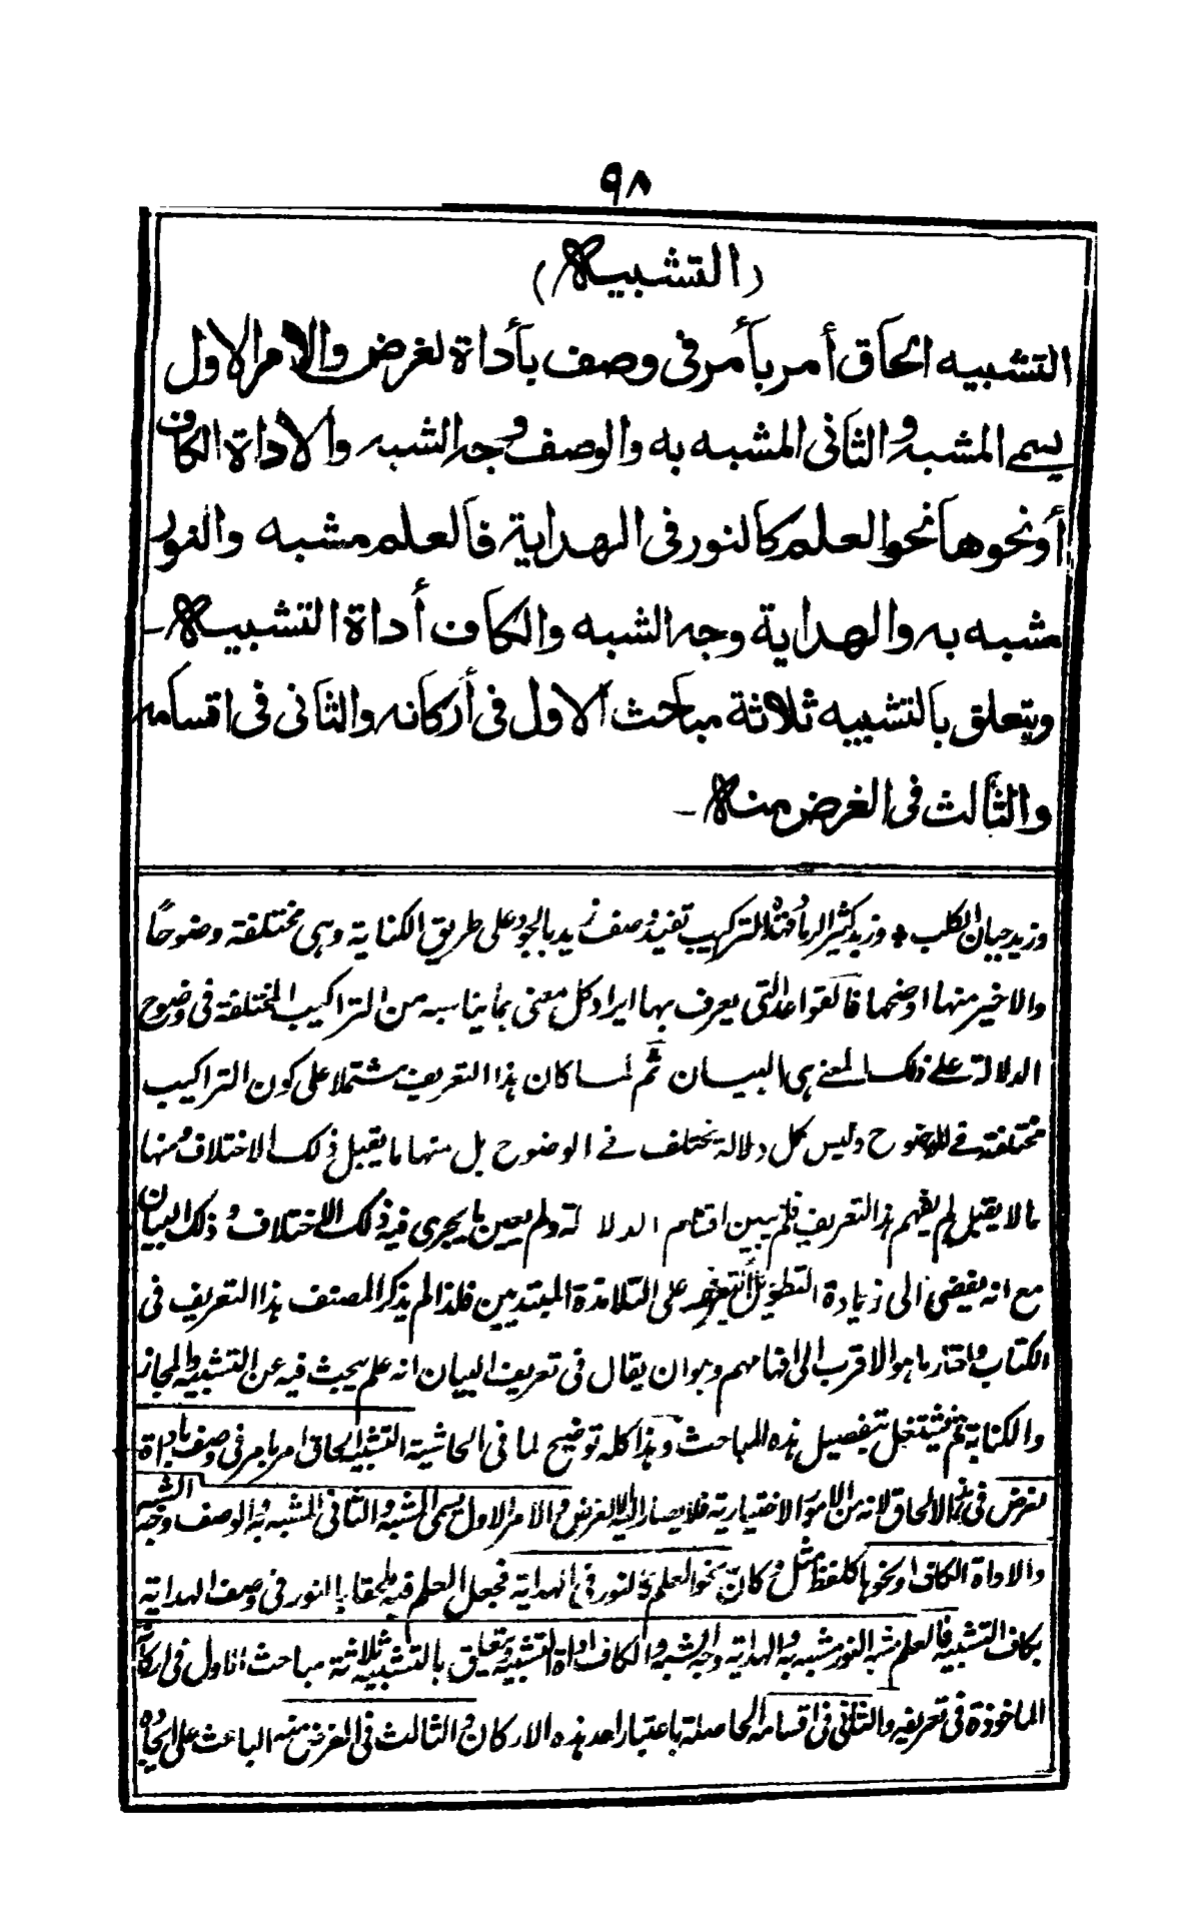 ٩٨
(التشبيه)
التشبيه الحاق أمر بأمر فى وصف بأداة لغرض والامر الاول
يسمى المشبه والثانى المشبه به والوصف وجه الشبه والاداة الكاف
أو نحوها نحو العلم كالنور فى الهداية فالعلم مشبه والنور
مشبه به والهداية وجه الشبه والكاف أداة التشبيه ـ
ويتعلق بالتشبيه ثلاثة مباحث الاول فى أركانه والثانى فى اقسامه
والثالث فى الغرض منه ـ
وزيد جبان الكلب * وزيد كثير الرماد فهذه التراكيب تفيد وصف زيد بالجود على طريق الكناية وهى مختلفة وضوحًا
والاخير منها اوضحها فالقواعد التى يعرف بها ايراد كل معنى بما يناسبه من التراكيب المختلفة فى وضوح
الدلالة على ذلك المعنى هى البيان ثم لما كان هذا التعريف مشتملا على كون التراكيب
مختلفة فى الوضوح وليس كل دلالة يختلف فى الوضوح بل منها ما يقبل ذلك الاختلاف ومنها
مالا يقبل لم يفهم هذا التعريف فلم يبين اقسام الدلالة ولم يعين ما يجرى فيه ذلك الاختلاف وذلك البيان
مع انه يفضى الى زيادة التطويل على التلامذة المبتديين فلذا لم يذكر المصنف هذا التعريف فى
الكتاب واختار ما هو الاقرب الى افهامهم وهو ان يقال فى تعريف البيان انه علم يبحث فيه عن التشبيه والمجاز
والكناية ثم يشتغل بتفصيل هذه المباحث وهذا كله توضيح لما فى الحاشية التشبيه الحاق امر بامر فى وصف باداة
لغرض فى الالحاق لانه من الامور الاختيارية فلا يصار اليه الا لغرض والامر الاول يسمى المشبه والثانى المشبه به والوصف وجه الشبه
والاداة الكاف او نحوها كلفظ مثل وكان نحو العلم كالنور فى الهداية فجعل العلم فيه ملحقا بالنور فى وصف الهداية
بكاف التشبيه فالعلم مشبه والنور مشبه به والهداية وجه الشبه والكاف اداة التشبيه ويتعلق بالتشبيه ثلاثة مباحث الاول فى اركانه
الماخوذة فى تعريفه والثانى فى اقسامه الحاصلة باعتبار احد هذه الاركان والثالث فى الغرض منه الباعث على ايجاده